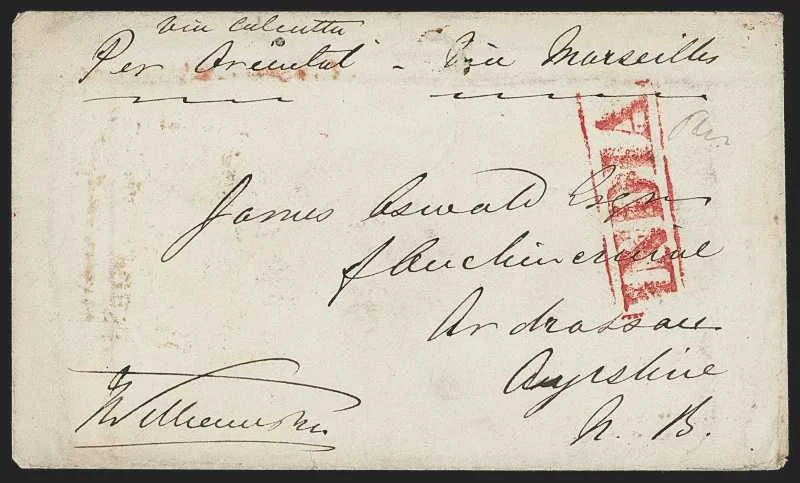 via Calcutta
Per Oriental - Via Marseilles
INDIA
James Oswald Esqr
of Auchincruive
Ardrossan
Ayrshire
N. B.